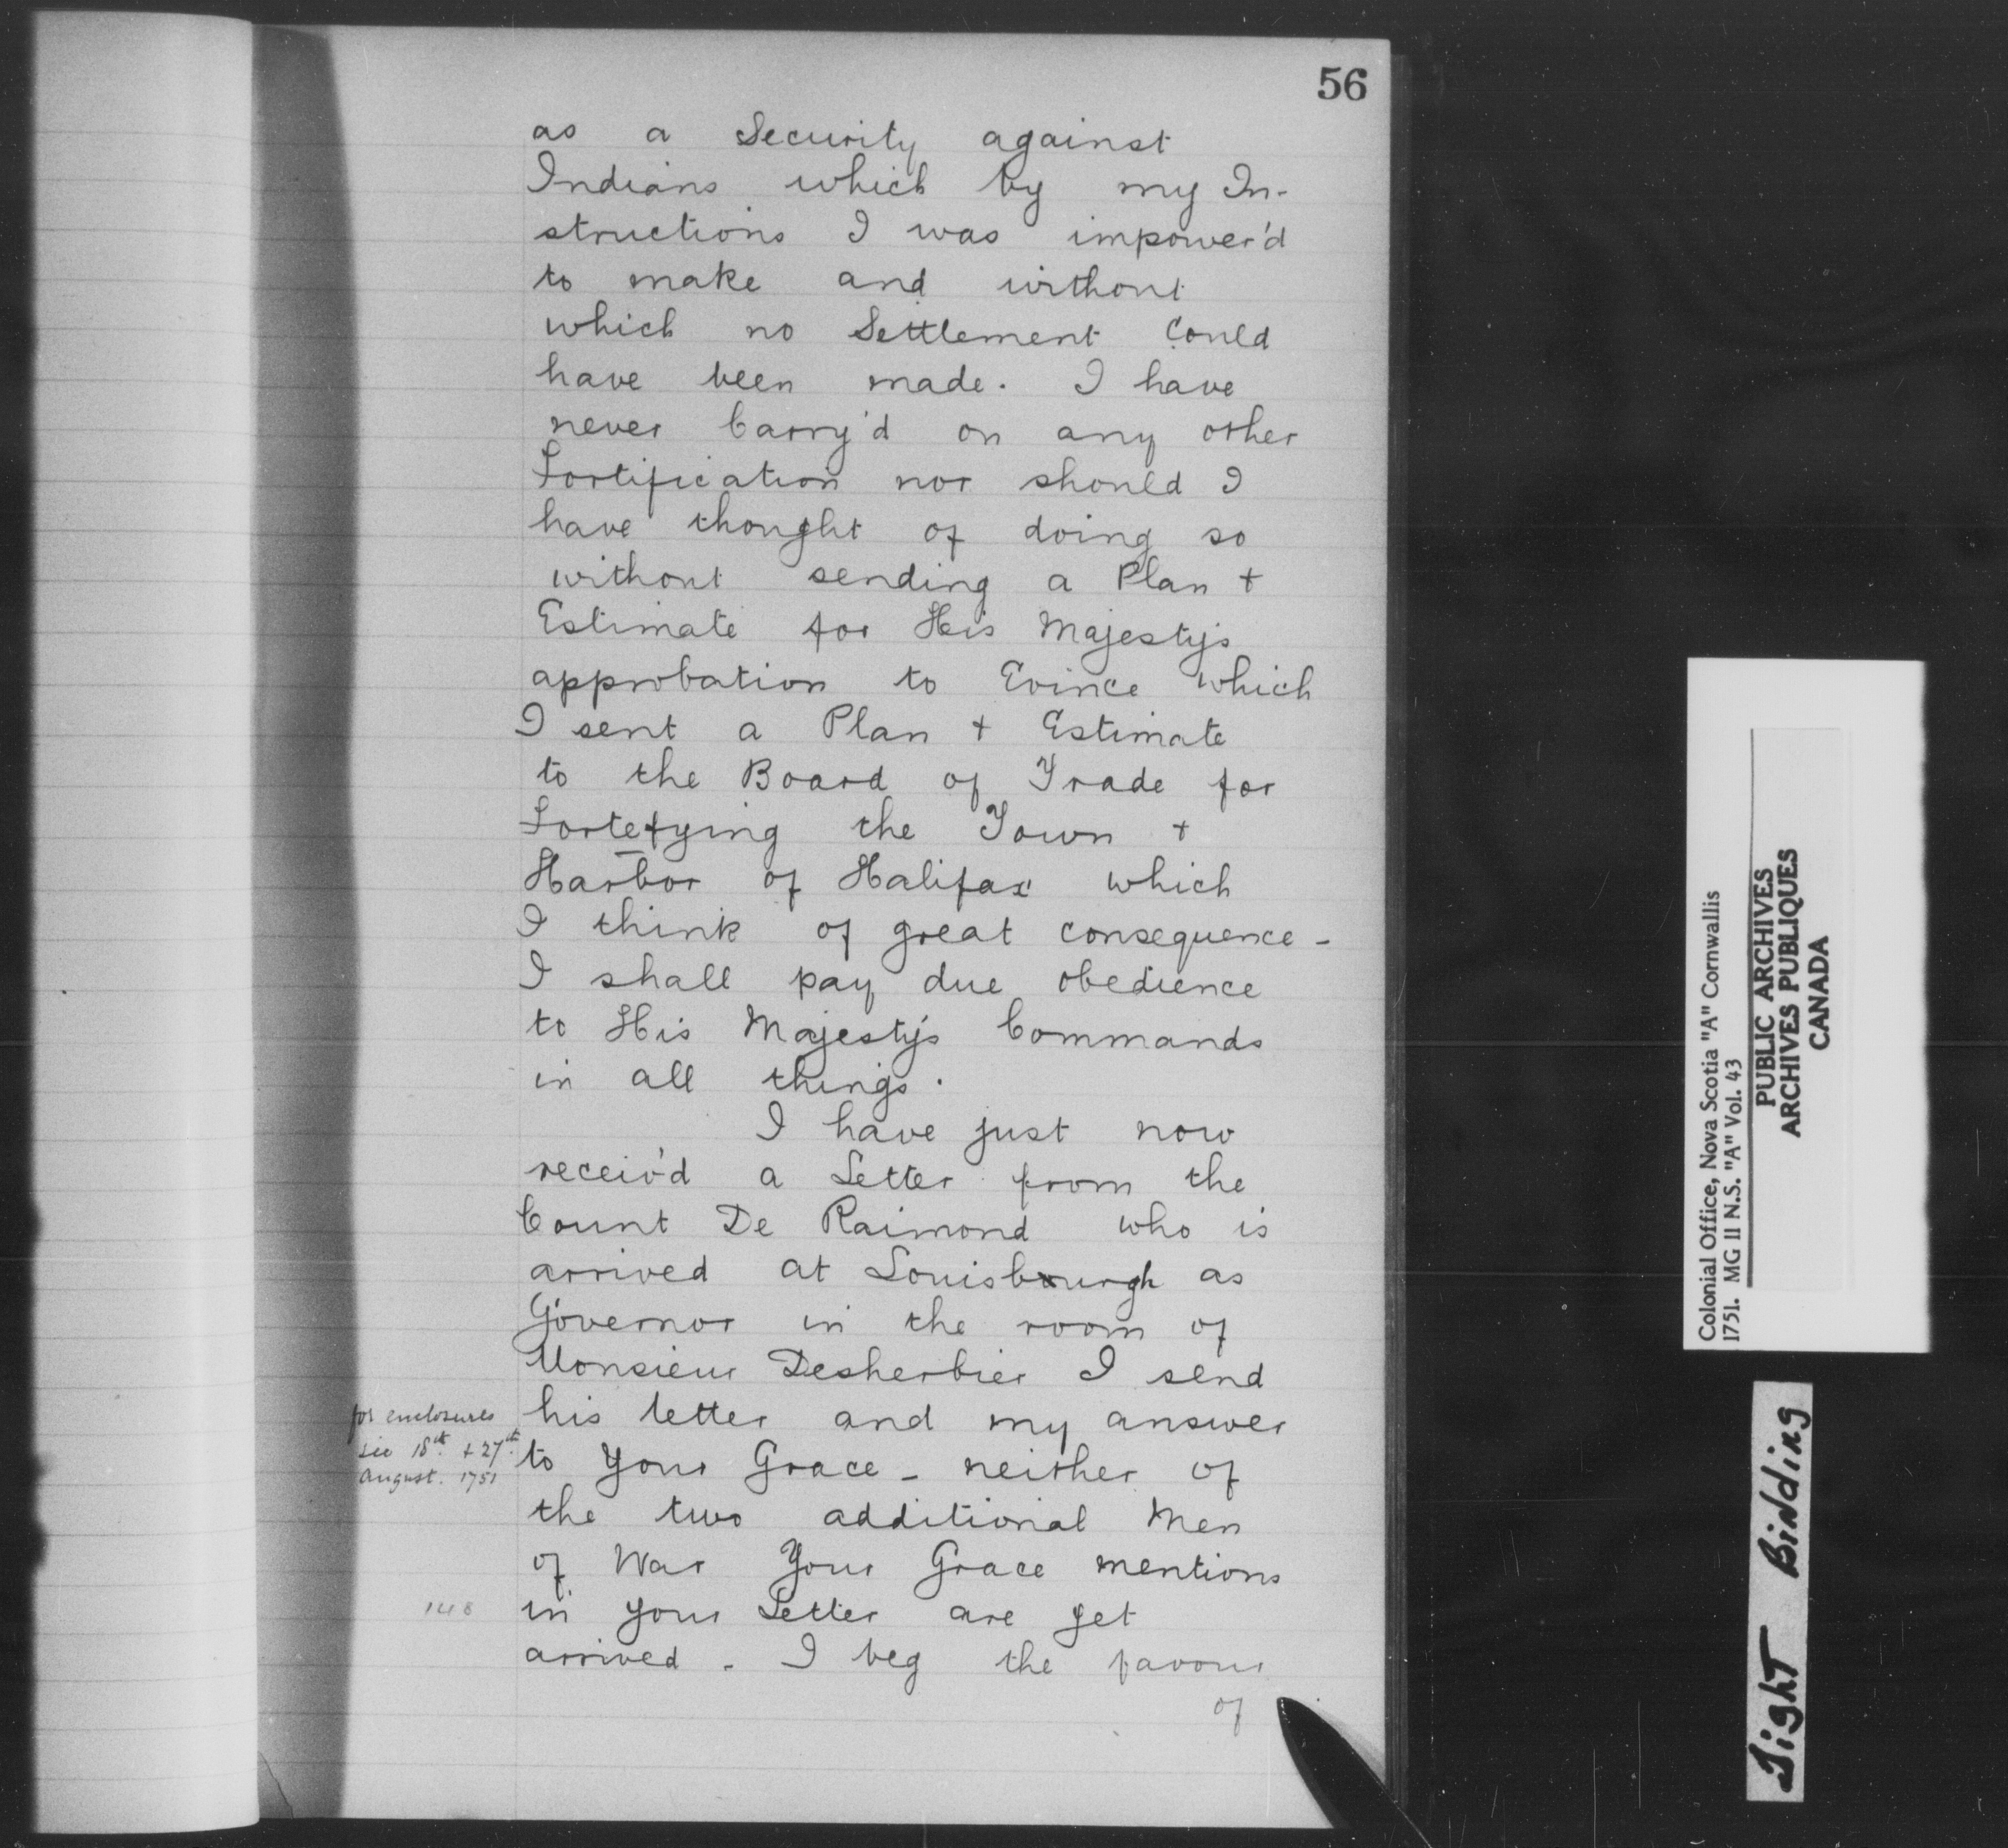 56
as a Security against
Indians which by my In-
structions I was impower'd
to make and without
which no Settlement Could
have been made. I have
never Carry'd on any other
Fortification nor should I
have thought of doing so
without sending a Plan +
Estimate for His Majesty's
approbation to Evince which
I sent a Plan + Estimate
to the Board of Trade for
Fortefying the Town +
Harbor of Halifax which
I think of great consequence -
I shall pay due obedience
to His Majesty's Commands
in all things.
I have just now
receiv'd a Letter from the
Count De Raimond who is
arrived at Louisbourgh as
Governor in the room of
Monsieur Desherbier I send
his letter and my answer
to Your Grace - neither of
the two additional Men
of War Your Grace mentions
in your Letter are yet
arrived - I beg the favour
of
for enclosures
see 18th + 27th
August. 1751
148
Colonial Office, Nova Scotia "A" Cornwallis
1751. MG 11 N.S. "A" Vol. 43
PUBLIC ARCHIVES
ARCHIVES PUBLIQUES
CANADA
Tight Binding